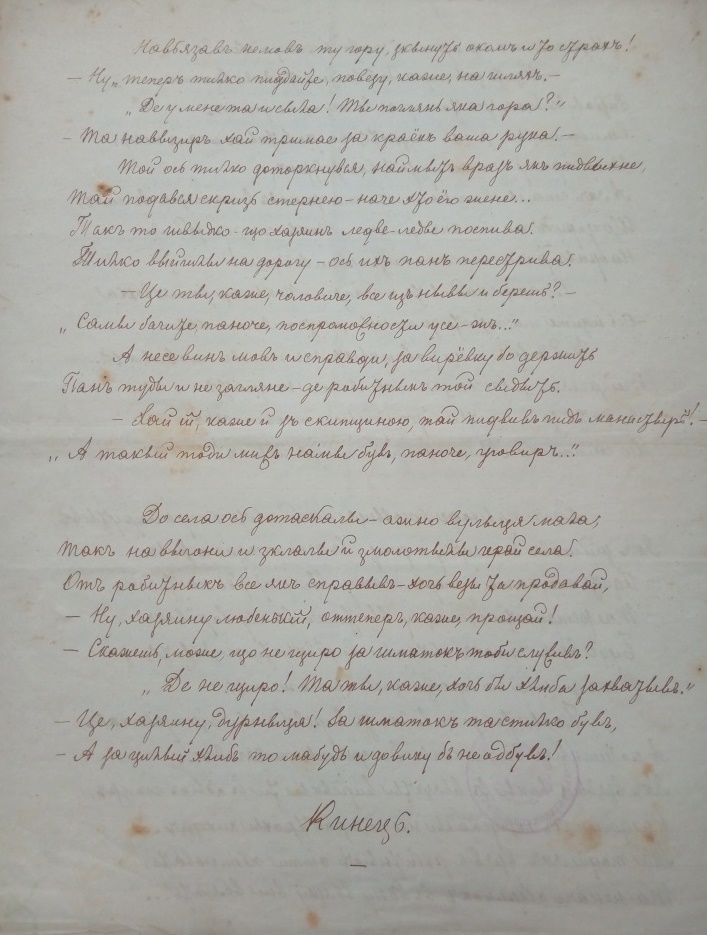 Навъязавъ немовъ ту гору, зкынуть окомъ и то страхъ!
— Ну„ теперъ тилько пиддайте, повезу, каже, на шляхъ. —
„Де у мене та и сыла! Ты поглянь яка гора?"
— Та наввыиръ хай тримае за краёкъ ваша рука. —
Той ось тилько доторкнувся, наймытъ вразъ якъ пидвыхне,
Тай подався скризь стернею — наче хто ёго жене...
Такъ то швыдко — що хазяинъ ледве-ледве поспива.
Тилько выйшлы на дорогу — ось ихъ панъ перестрива.
— Це ты, каже, чоловиче, все изъ ныввы и берешъ? —
„Самы бачите, паноче, поспромовности усе-жъ..."
А несе винъ мовъ и справди, за вирёвку бо держить
Панъ туды и не загляне — де робитныкъ той свыдыть.
— Хай ій, каже й зъ скипщиною, тай пидвивъ пидъ манастырь! —
„А такый тоди мижъ намы бувъ, паноче, уговиръ..."
До села ось дотаскалы — ажно вулыця мала,
Такъ на выгони и зклалы й змолотылы край села.
Отъ робитныкъ все якъ справывъ — хочь везы та продавай,
— Ну, хазяину любенькій, оттеперъ, каже, прощай!
— Скажешъ, може, що не щиро за шматокъ тоби служивъ?
„Де не щиро! Та ты, каже, хочь бы хлиба захватывъ."
— Це, хазяину, дурныця! За шматокъ та стилько бувъ,
— А за цилый хлибъ то мабудь и довику бъ не одбувъ!
Кинець.